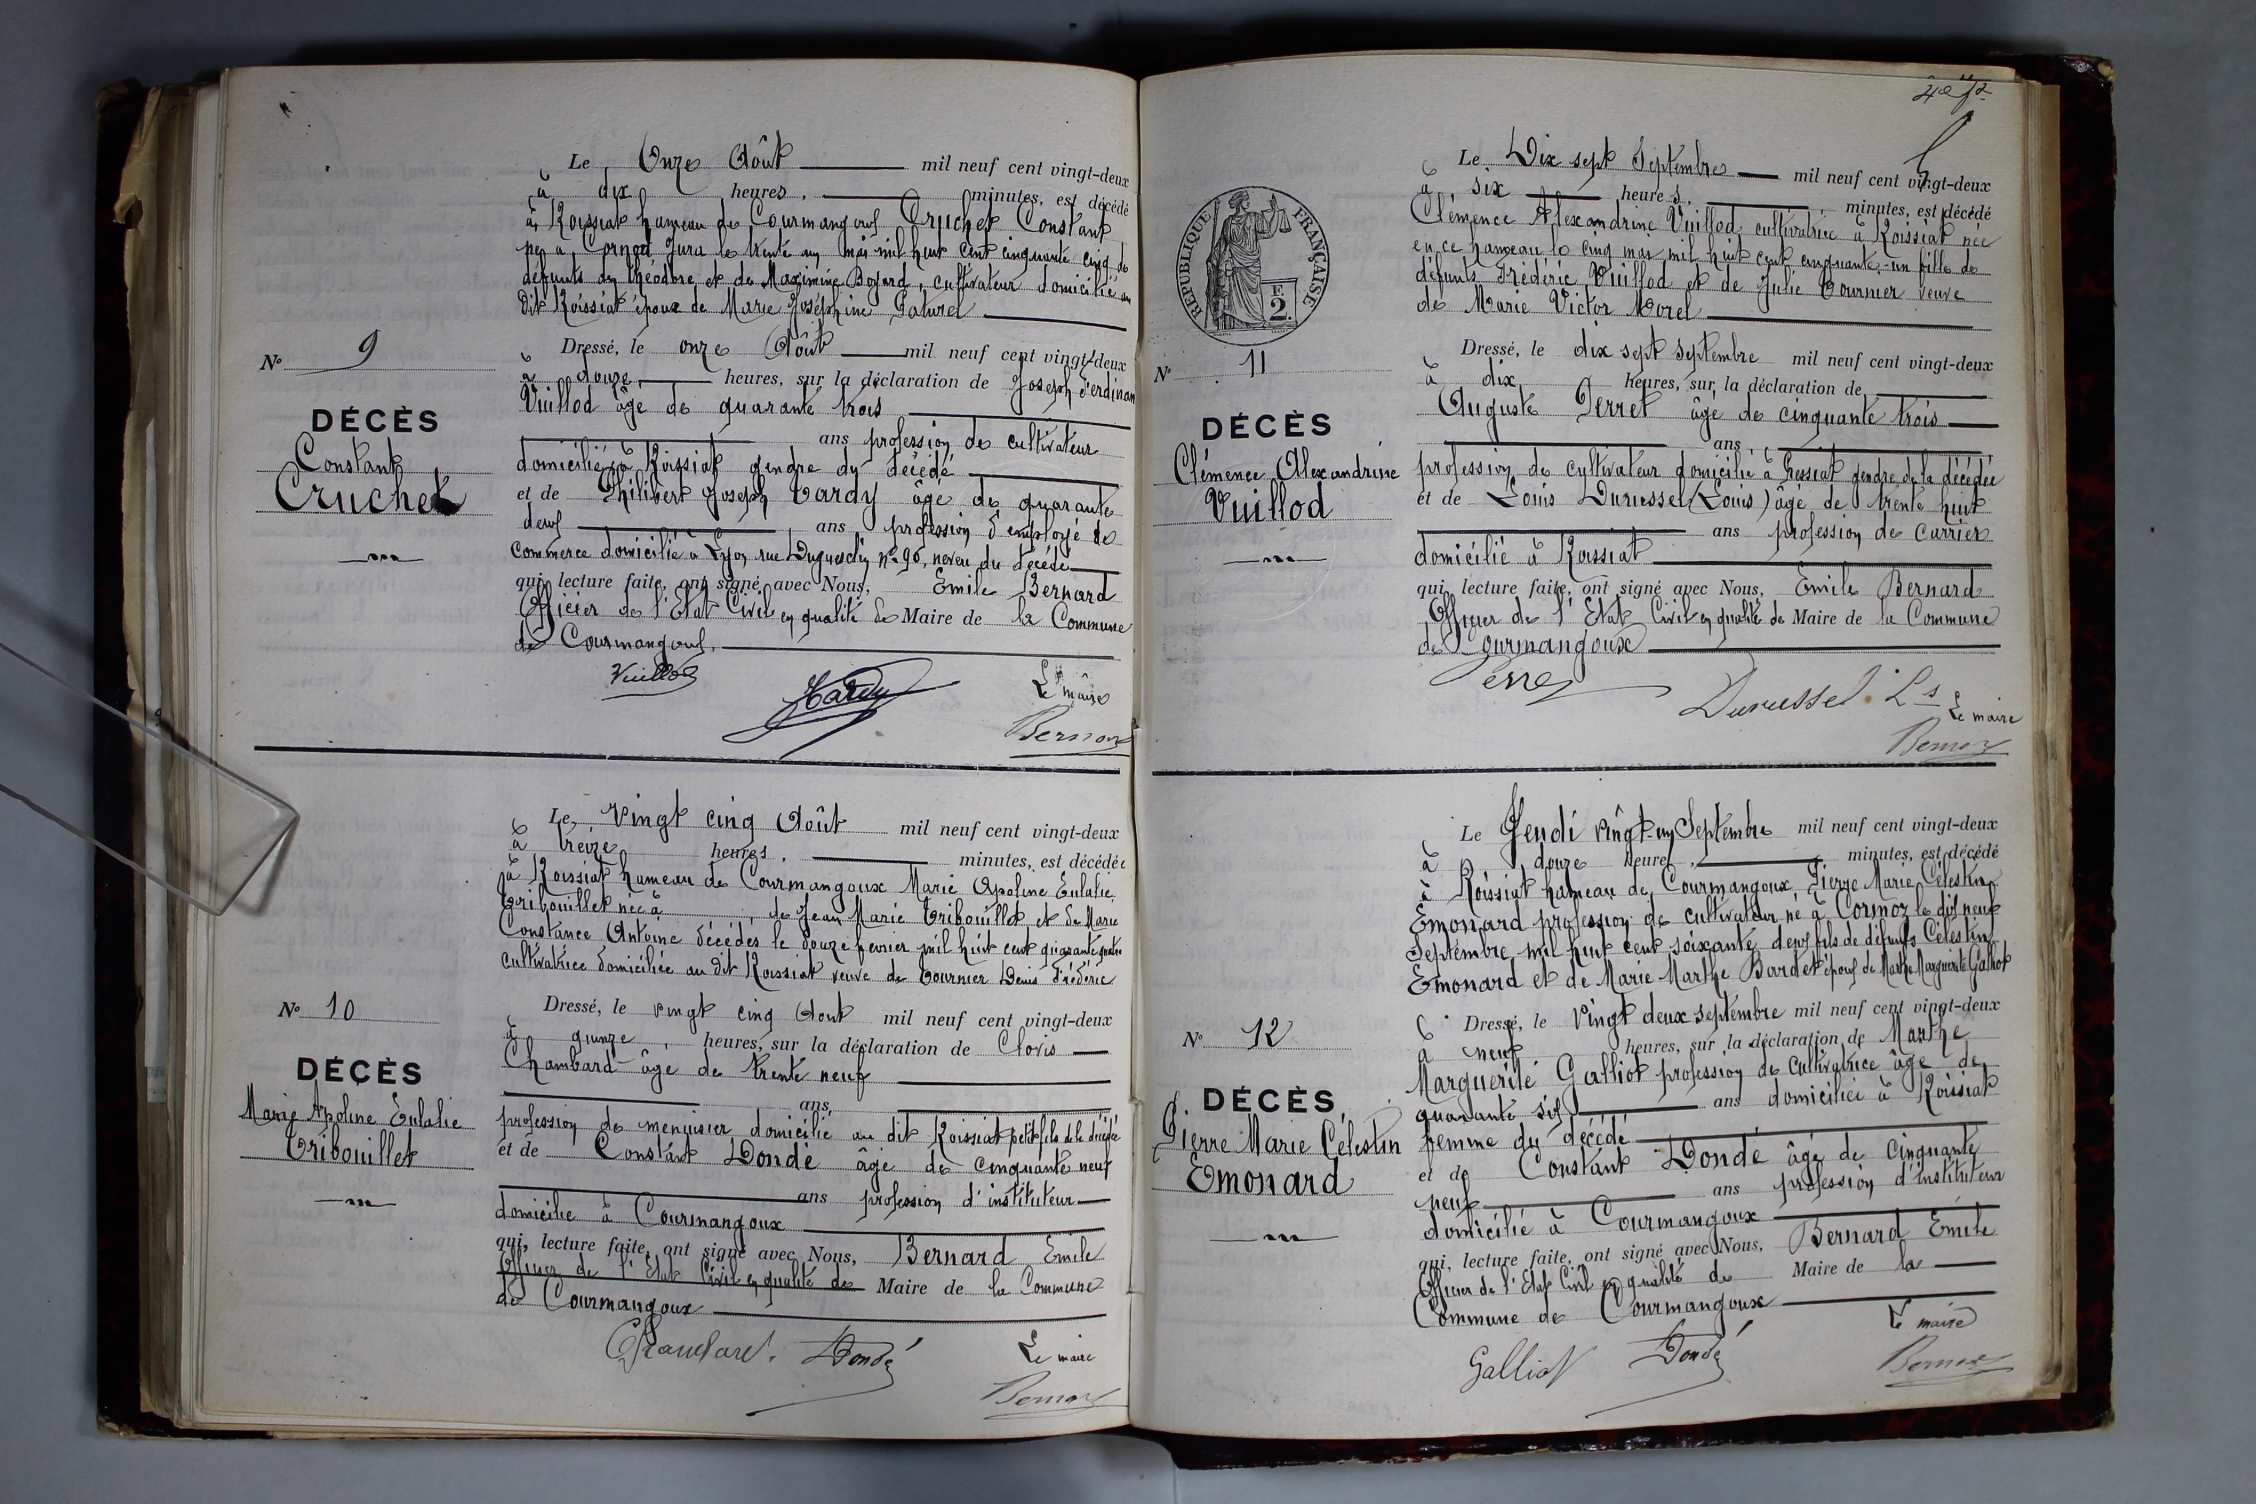 Le Onze Août mil neuf cent vingt-deux
à dix heures, minutes, est décédé
à Roissiat hameau de Courmangoux Cruchet Constant
né à Cornod Jura le trente un mai mil huit cent cinquante cinq de
défunts Théodore et de Maximine Bojard, cultivateur domicilié au
dit Roissiat époux de Marie Joséphine Paturel
Dressé, le onze Août mil neuf cent vingt-deux
à douze heures, sur la déclaration de Joseph Ferdinan
Vuillod âgé de quarante trois
ans profession de cultivateur
domicilié à Roissiat gendre du décédé
et de Philibert Joseph Tardy âgé de quarante
deux ans profession d'employé de
commerce domicilié à Lyon rue Duguesclin n° 90, neveu du décédé
qui, lecture faite, ont signé avec Nous, Emile Bernard
Officier de l'Etat Civil en qualité de Maire de la Commune
de Courmangoux.
Vuillod
Tardy
Le maire
Bernard
N° 9
DÉCÈS
Constant
Cruchet
Le vingt cinq Août mil neuf cent vingt-deux
à treize heures, minutes, est décédée
à Roissiat hameau de Courmangoux Marie Apoline Eulalie
Tribouillet née à , de Jean Marie Tribouillet et de Marie
Constance Antoine décédés le douze février mil huit cent quarante quatre
cultivatrice domiciliée au dit Roissiat veuve de Tournier Denis Frédéric
Dressé, le vingt cinq Aout mil neuf cent vingt-deux
à quinze heures, sur la déclaration de Clovis
Chambard âgé de trente neuf
ans
profession de menuisier domicilié au dit Roissiat petit fils de la décédée
et de Constant Dondé âgé de cinquante neuf
ans profession d'instituteur
domicilié à Courmangoux
qui, lecture faite, ont signé avec Nous, Bernard Emile
Officier de l'Etat Civil en qualité de Maire de la Commune
de Courmangoux
Chambard. Dondé
Le maire
Bernard
N° 10
DÉCÈS
Marie Apoline Eulalie
Tribouillet
RÉPUBLIQUE FRANÇAISE
F.
2.
Le Dix sept Septembre mil neuf cent vingt-deux
à six heures, minutes, est décédé
Clémence Alexandrine Vuillod cultivatrice à Roissiat née
en ce hameau le cinq mai mil huit cent cinquante-un fille de
défunts Frédéric Vuillod et de Julie Tournier veuve
de Marie Victor Morel
Dressé, le dix sept septembre mil neuf cent vingt-deux
à dix heures, sur la déclaration de
Auguste Perret âgé de cinquante trois
ans
profession de cultivateur domicilié à Pressiat gendre de la décédée
et de Louis Duruessel (Louis) âgé de trente huit
ans profession de carrier
domicilié à Roissiat
qui, lecture faite, ont signé avec Nous, Emile Bernard
Officier de l'Etat Civil en qualité de Maire de la Commune
de Courmangoux
Perret
Duruessel Ls
Le maire
Bernard
N° 11
DÉCÈS
Clémence Alexandrine
Vuillod
Le Jeudi vingt-un Septembre mil neuf cent vingt-deux
à douze heures, minutes, est décédé
à Roissiat hameau de Courmangoux Pierre Marie Célestin
Emonard profession de cultivateur né à Cormoz le dix neuf
Septembre mil huit cent soixante deux fils de défunts Célestin
Emonard et de Marie Marthe Bardet époux de Marthe Marguerite Galliot
Dressé, le vingt deux septembre mil neuf cent vingt-deux
à neuf heures, sur la déclaration de Marthe
Marguerite Galliot profession de cultivatrice âgé de
quarante six ans domiciliée à Roissiat
femme du décédé
et de Constant Dondé âgé de cinquante
neuf ans profession d'instituteur
domicilié à Courmangoux
qui, lecture faite, ont signé avec Nous, Bernard Emile
Officier de l'Etat Civil en qualité de Maire de la
Commune de Courmangoux
Galliot
Dondé
Le maire
Bernard
N° 12
DÉCÈS
Pierre Marie Célestin
Emonard